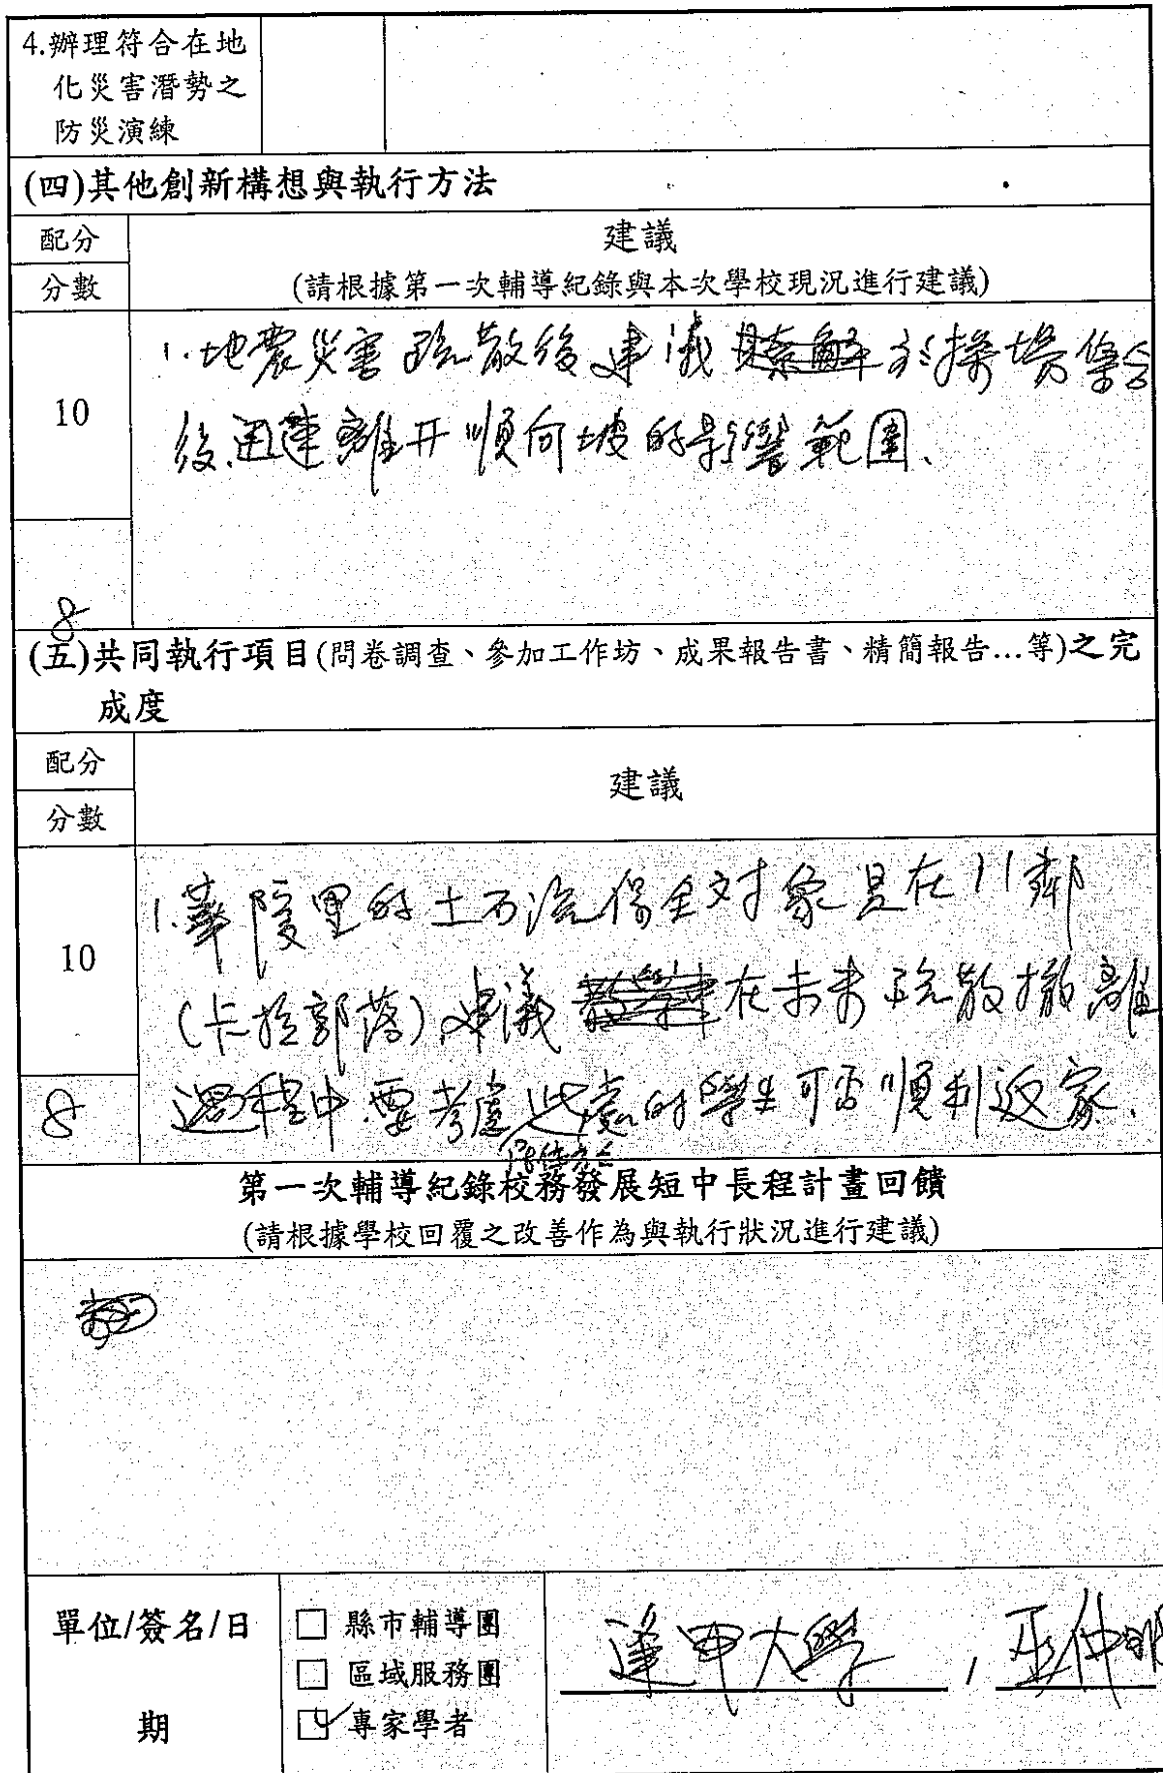 4.辦理符合在地
化災害潛勢之
防災演練
(四)其他創新構想與執行方法
配分
建議
分數
(請根據第一次輔導紀錄與本次學校現況進行建議)
10
1.地震災害疏散後建議於操場集合
後迅速離開順向坡的影響範圍.
8
(五)共同執行項目(問卷調查、參加工作坊、成果報告書、精簡報告...等)之完
成度
配分
建議
分數
10
1.華陵里的土石流保全对象是在11鄰
(卡拉部落)建議在未來疏散撤離
8
過程中要考慮此處的學生可否順利返家.
第一次輔導紀錄校務發展短中長程計畫回饋
(請根據學校回覆之改善作為與執行狀況進行建議)
單位/簽名/日
期
□ 縣市輔導團
□ 區域服務團
☑ 專家學者
逢甲大學,